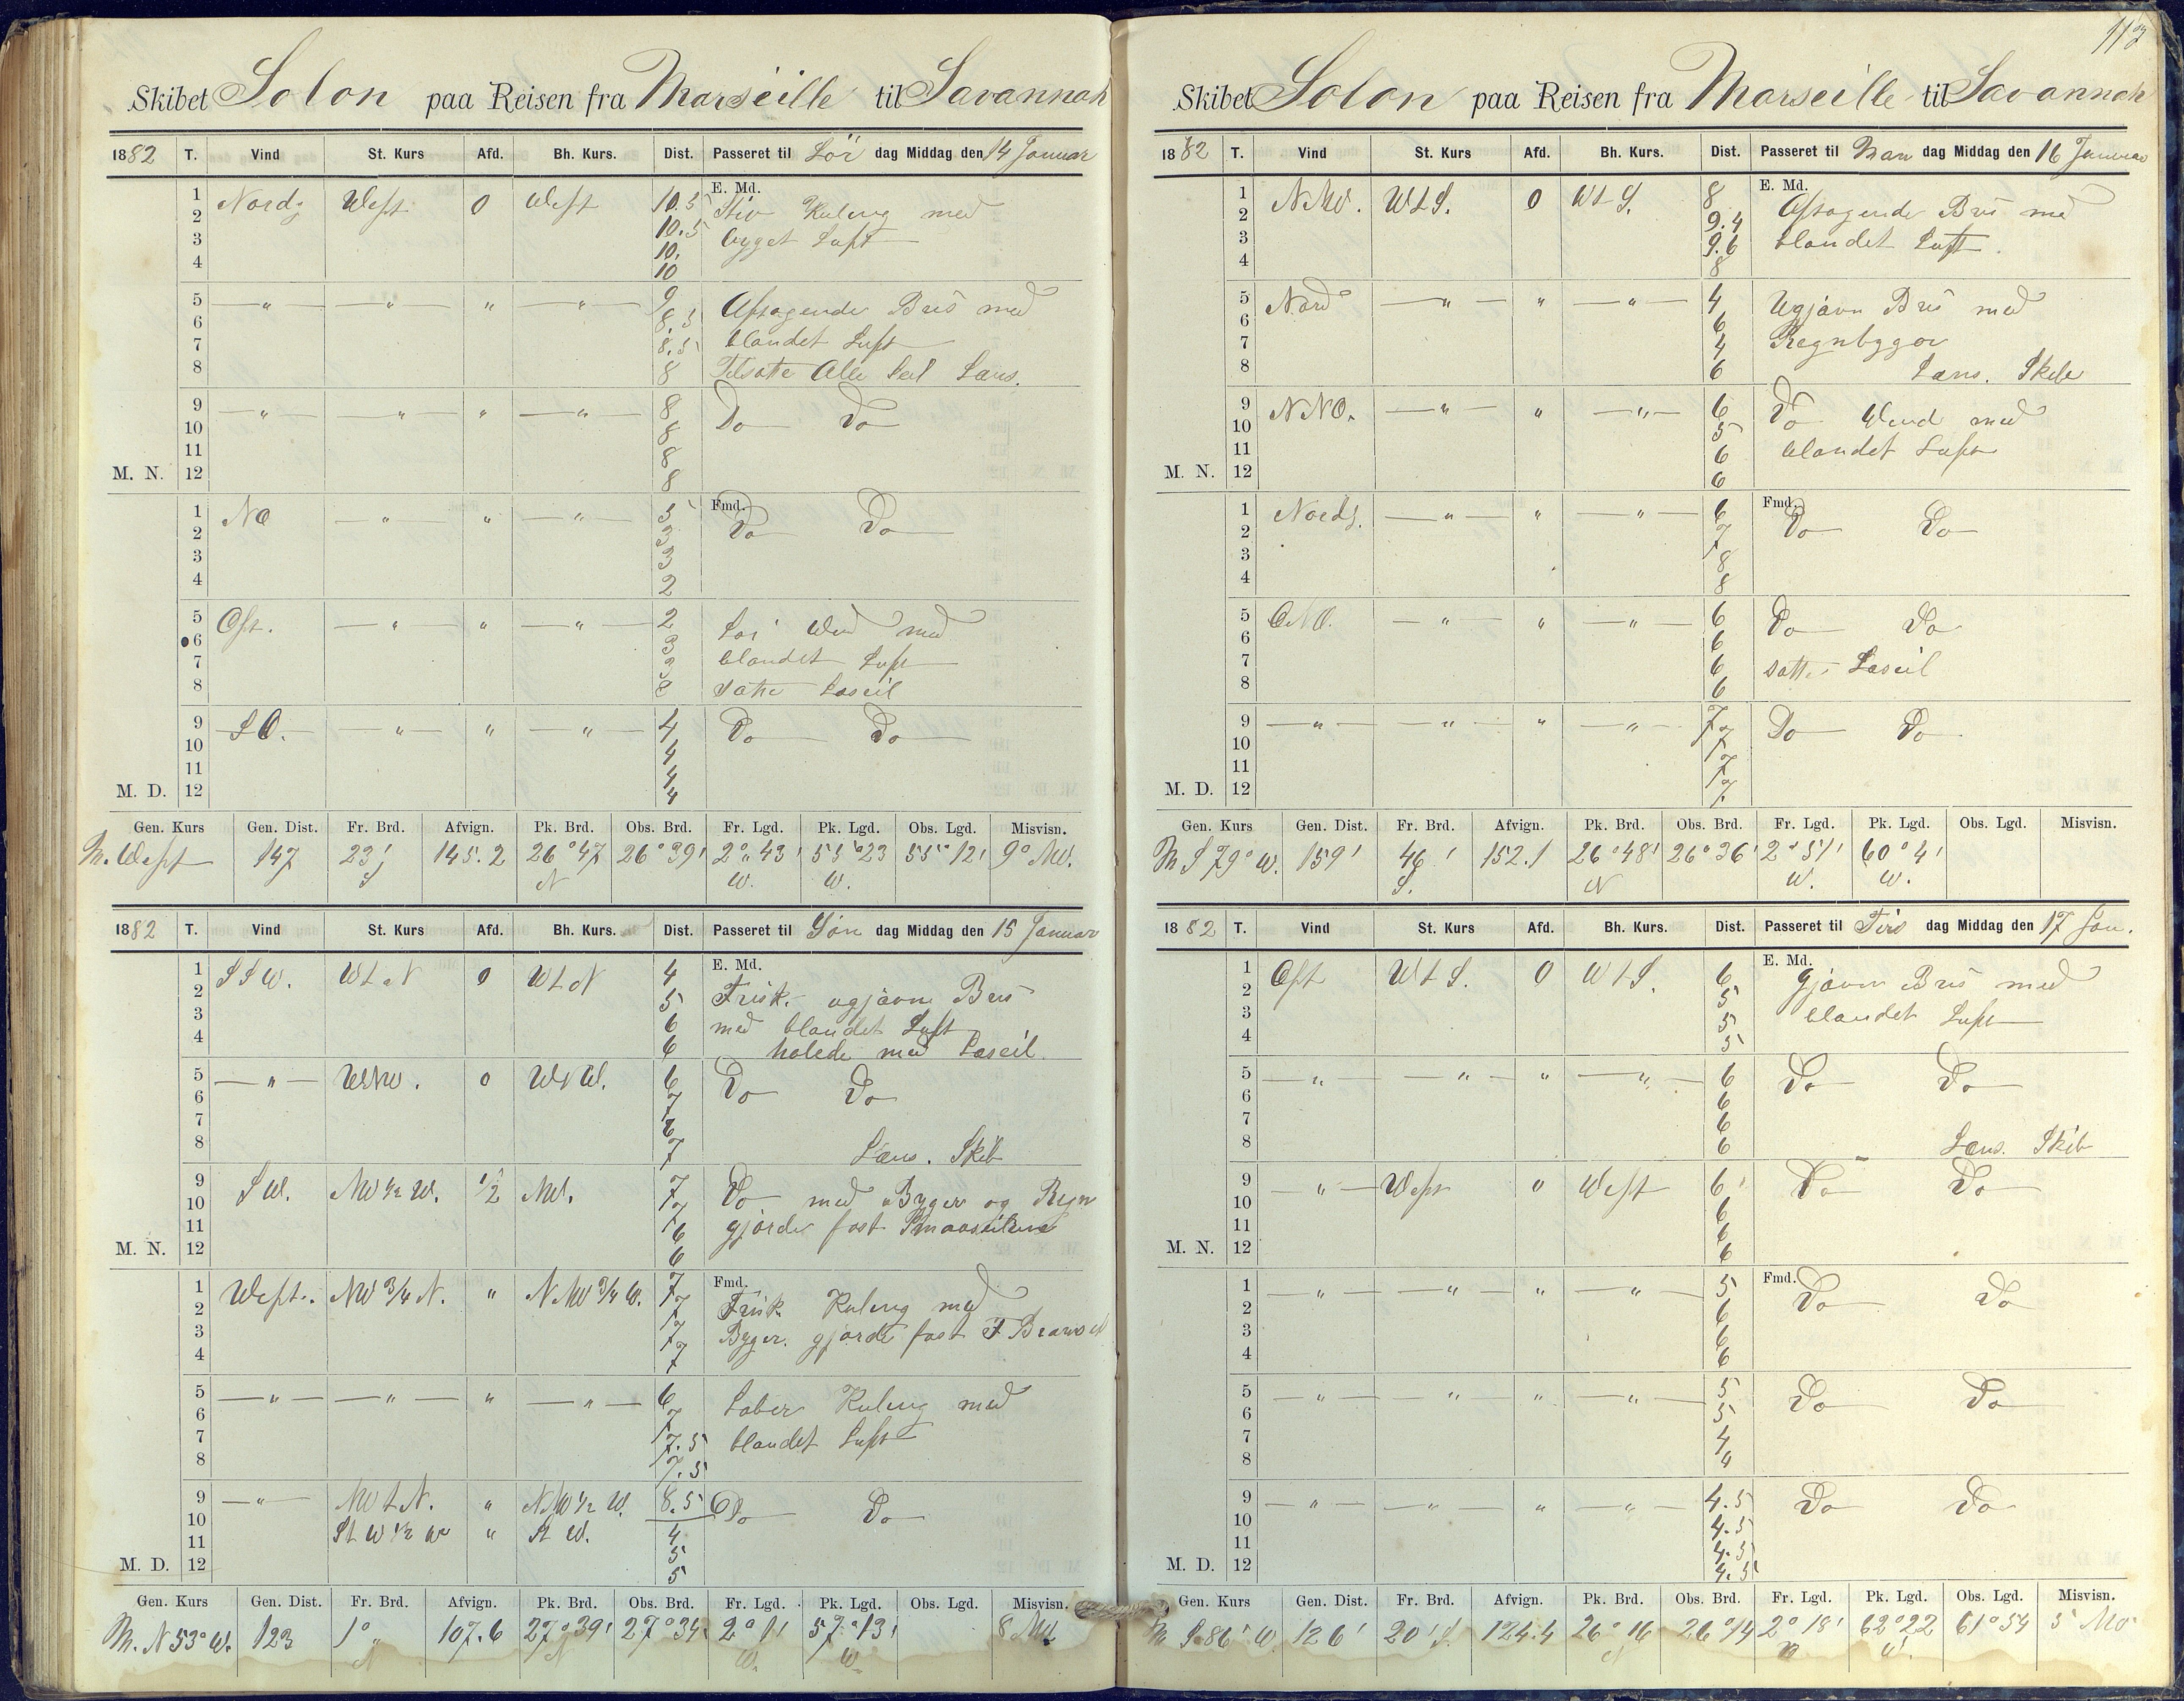 112
Skibet Solon paa Reisen fra Marseille til Savannah
1882 T. Vind St. Kurs Afd. Bh. Kurs. Dist. Passeret til Lör dag Middag den 14 Januar
E. Md.
1 Nordg West 0 West 10.5 Stiv Kuling med
2 10.5 byget Luft
3 10.
4 10
5 — " — — " — " — " — 9 Aftagende Bris med
6 8.5
7 8.5 blandet Luft
8 8 Tilsatte Alle Seil Læns.
9 — " — — " — " — " — 8 Do Do
10 8
11 8
M. N. 12 8
Fmd.
1 NO — " — " — " — 5 Do Do
2 3
3 3
4 2
5 Ost. — " — " — " — 2 Lör Wind med
6 3
7 3 blandet Luft
8 satte Læseil
9 SO. — " — " — " — 4 Do Do
10 4
11 4
M. D. 12 4
Gen. Kurs Gen. Dist. Fr. Brd. Afvign. Pk. Brd. Obs. Brd. Fr. Lgd. Pk. Lgd. Obs. Lgd. Misvisn.
M. West 147 23' S 145.2 26°47 N 26°39' 2°43' W. 55°23 W. 55°12' 9° NW.
1882 T. Vind St. Kurs Afd. Bh. Kurs. Dist. Passeret til Sön dag Middag den 15 Januar
E. Md.
1 SSW. WtN 0 WtN 4 Frisk ugjævn Bris
2 5
3 6 med blandet Luft
4 6 halede ned Læseil
5 — " — WNW. 0 WNW. 6 Do Do
6 7
7 6
8 7 Læns. Skib
9 SW. NW½W. ½ NW. 7 Do med Byger og Regn
10 7
11 6 gjorde fast Smaaseilene
M. N. 12 6
Fmd.
1 West. NW¾N. " NNW¾W. 7 Frisk Kuling med
2 7
3 7 Byger. gjorde fast F
4 7
5 — " — — " — " — " — 6 Laber Kuling med
6 7
7 7.5 blandet Luft
8 7.5
9 — " — NWtN. " NNW½W. 8.5 Do Do
10 StW½W " StW. 4
11 5
M. D. 12 5
Gen. Kurs Gen. Dist. Fr. Brd. Afvign. Pk. Brd. Obs. Brd. Fr. Lgd. Pk. Lgd. Obs. Lgd. Misvisn.
M. N 53° W. 123 1° " N 107.6 27°39' N 27°34' 2°1' W. 57°13' W. 8 NW
Skibet Solon paa Reisen fra Marseille til Savannah
1882 T. Vind St. Kurs Afd. Bh. Kurs. Dist. Passeret til Man dag Middag den 16 Januar
E. Md.
1 NNW. WtS. 0 WtS. 8 Aftagende Bris med
2 9.4
3 9.6 blandet Luft
4 8
5 Nord — " — " — " — 4 Ugjævn Bris med
6 6
7 4 Regnbyger
8 6 Læns. Skibe
9 NNO. — " — " — " — 6 Do Wind med
10 5
11 6 blandet Luft
M. N. 12 6
Fmd.
1 Nordg. — " — " — " — 6 Do Do
2 7
3 8
4 8
5 ONO. — " — " — " — 6 Do Do
6 6
7 6 satte Læseil
8 6
9 — " — — " — " — " — 7 Do Do
10 7
11 7
M. D. 12 7
Gen. Kurs Gen. Dist. Fr. Brd. Afvign. Pk. Brd. Obs. Brd. Fr. Lgd. Pk. Lgd. Obs. Lgd. Misvisn.
M S 79° W. 159' 46' S. 152.1 26°48' N 26°36' 2°51' W. 60°4' W.
1882 T. Vind St. Kurs Afd. Bh. Kurs. Dist. Passeret til Tirs dag Middag den 17 Jan.
E. Md.
1 Ost WtS. 0 WtS. 6 Gjævn Bris med
2 5
3 5 blandet Luft
4 5
5 — " — — " — " — " — 6 Do Do
6 6
7 6
8 6 Læns. Skib
9 — " — West 0 West 6 Do Do
10 6
11 6
M. N. 12 6
Fmd.
1 — " — — " — " — " — 5 Do Do
2 6
3 6
4 6
5 — " — — " — " — " — 5 Do Do
6 5
7 4
8 4
9 — " — — " — " — " — 4.5 Do Do
10 4.5
11 4.5
M. D. 12 4.5
Gen. Kurs Gen. Dist. Fr. Brd. Afvign. Pk. Brd. Obs. Brd. Fr. Lgd. Pk. Lgd. Obs. Lgd. Misvisn.
M S 86° W 126' 20' S. 124.4 26°16 N 26°14 2°18' 62°22 W. 61°54 5 NW